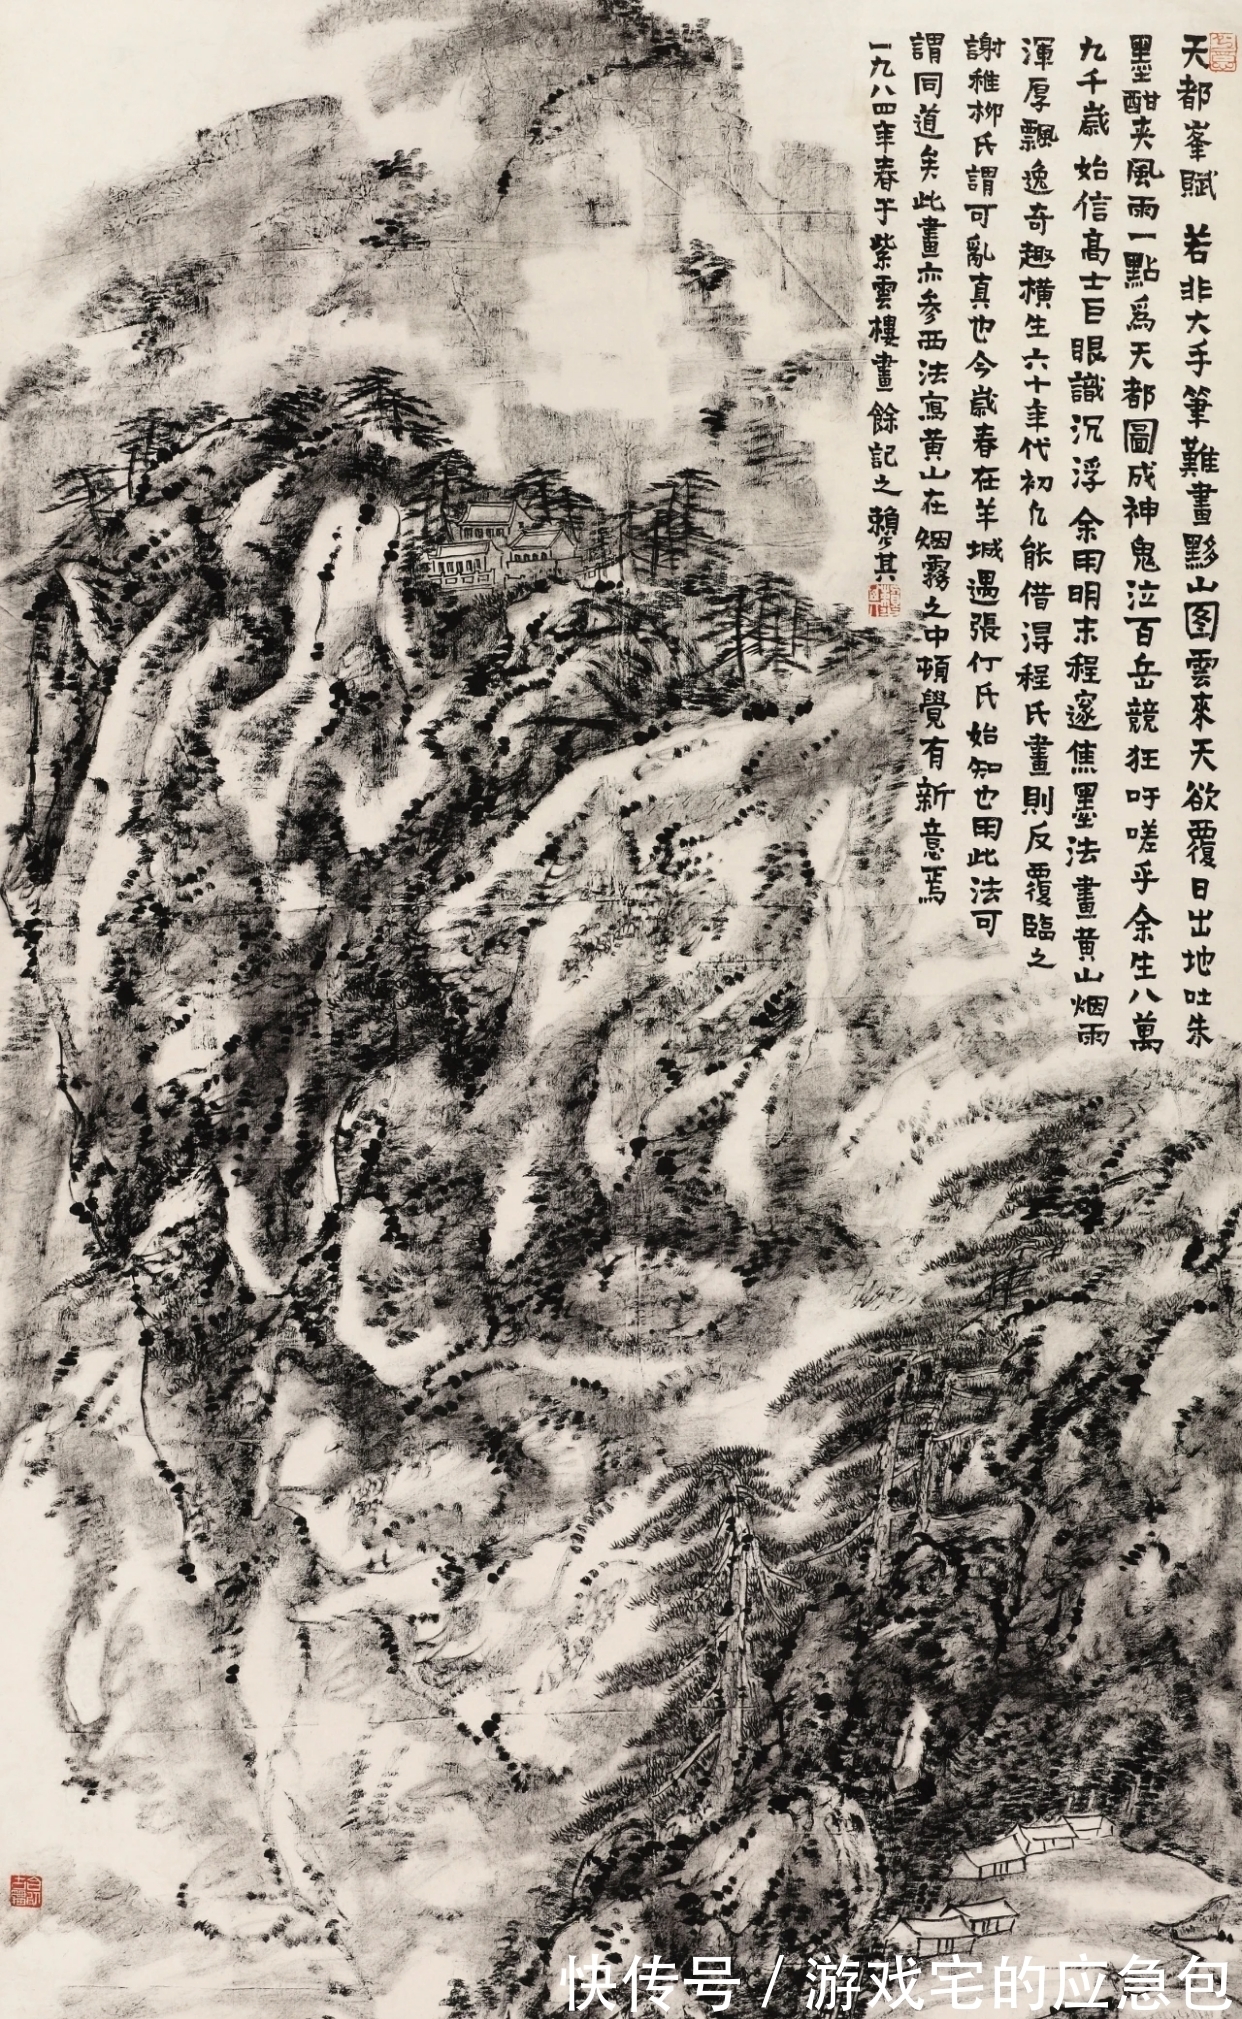 天都峯賦 若非大手筆難畫黟山图雲來天欲覆日出地吐朱
墨酣夾風雨一點爲天都圖成神鬼泣百岳競狂吁嗟乎余生八萬
九千歲 始信高士巨眼識沉浮 余用明末程邃焦墨法畫黄山烟雨
渾厚飄逸奇趣橫生六十年代初仇能借得程氏畫則反覆臨之
謝稚柳氏謂可亂真也今歲春在羊城遇張仃氏始知也用此法可
謂同道矣此畫亦參西法寫黄山在烟霧之中頓覺有新意焉
一九八四年春于紫雲樓畫餘記之賴少其
快传号 / 游戏宅的应急包